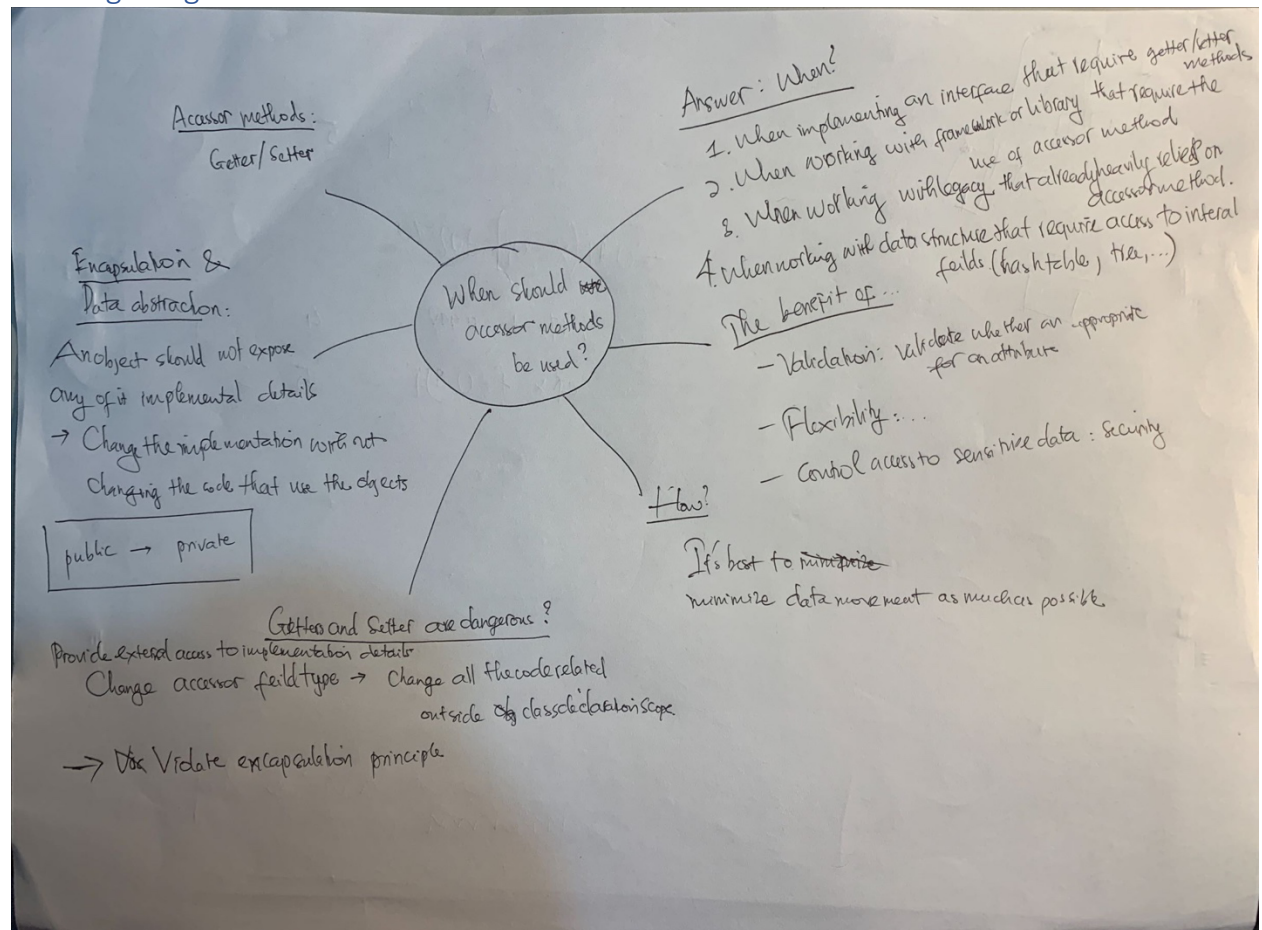 Accessor methods:
Getter/Setter
Encapsulation &
Data abstraction:
An object should not expose
any of it implemental details
→ Change the implementation without
changing the code that use the objects
public → private
When should
accessor methods
be used?
Answer: When?
1. When implementing an interface that require getter/setter
methods
2. When working with framework or library that require the
use of accessor method
3. When working with legacy that already heavily relies on
accessor method.
4. When working with data structure that require access to interal
feilds (hashtable, tree, ...)
The benefit of ...
- Validation: Validate whether an appropriate
for an attribute
- Flexibility: ...
- Control access to sensitive data: Security
How?
It's best to minimize
minimize data movement as much as possible
Getters and Setter are dangerous?
Provide external access to implementation details
Change accessor feild type → Change all the code related
outside class declaration scope
→ Violate encapsulation principle